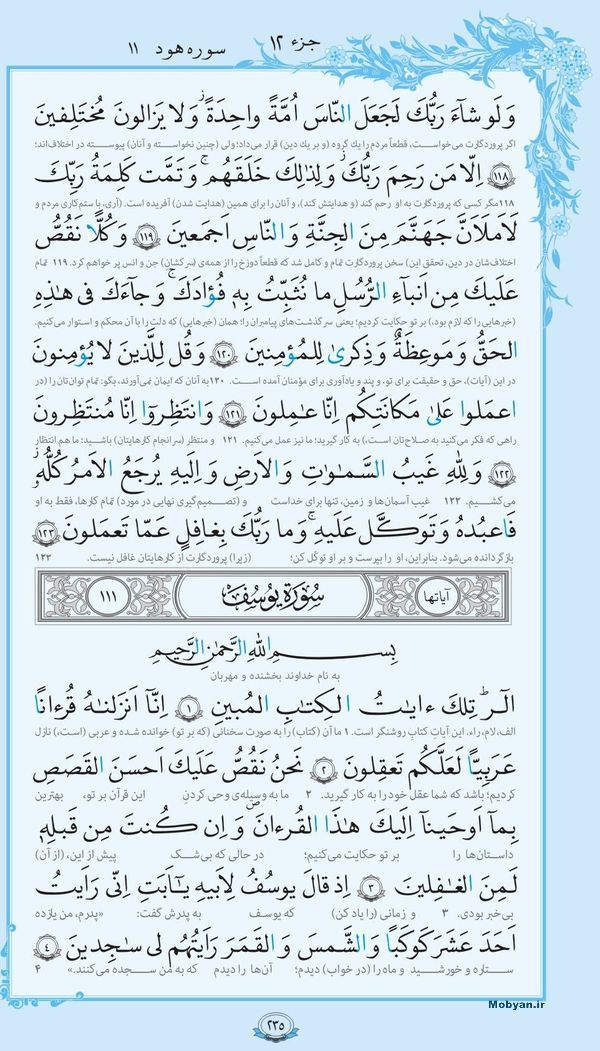 جزء ۱۲ سوره هود ۱۱
وَلَو شاءَ رَبُّكَ لَجَعَلَ النّاسَ اُمَّةً واحِدَةً وَلا يَزالونَ مُختَلِفينَ
اگر پروردگارت می‌خواست، قطعاً مردم را یك گروه (و بر یك دین) قرار می‌داد؛ ولی (چنین نخواسته و آنان) پیوسته در اختلاف‌اند؛
۱۱۸ اِلّا مَن رَحِمَ رَبُّكَ وَلِذٰلِكَ خَلَقَهُم وَتَمَّت كَلِمَةُ رَبِّكَ
۱۱۸ مگر کسی که پروردگارت به او رحم کند (و هدایتش کند)، و آنان را برای همین (هدایت شدن) آفریده است. (آری، با ستم‌کاری مردم و
لَاَملَاَنَّ جَهَنَّمَ مِنَ الجِنَّةِ وَالنّاسِ اَجمَعينَ ۱۱۹ وَكُلًّا نَقُصُّ
اختلاف‌شان در دین، تحقق این) سخن پروردگارت تمام و کامل شد که قطعاً دوزخ را از همه‌ی (سرکشان) جن و انس پر خواهم کرد. ۱۱۹ تمام
عَلَيكَ مِن اَنباءِ الرُّسُلِ ما نُثَبِّتُ بِه۪ فُؤادَكَ وَجاءَكَ في هٰذِهِ
(خبرهایی را که لازم بود،) بر تو حکایت کردیم؛ یعنی سرگذشت‌های پیامبران را؛ همان (خبرهایی) که دلت را با آن محکم و استوار می‌کنیم.
الحَقُّ وَمَوعِظَةٌ وَذِكرىٰ لِلمُؤمِنينَ ۱۲۰ وَقُل لِلَّذينَ لا يُؤمِنونَ
در این (آیات)، حق و حقیقت برای تو، و پند و یادآوری برای مؤمنان آمده است. ۱۲۰ به آنان که ایمان نمی‌آورند، بگو: تمام توان‌تان را (در
اعمَلوا عَلىٰ مَكانَتِكُم اِنّا عٰمِلونَ ۱۲۱ وَانتَظِروا اِنّا مُنتَظِرونَ
راهی که فکر می‌کنید به صلاح‌تان است،) به کار گیرید؛ ما نیز عمل می‌کنیم. ۱۲۱ و منتظر (سرانجام کارهایتان) باشید؛ ما هم انتظار
۱۲۲ وَلِلّٰهِ غَيبُ السَّمٰوٰتِ وَالاَرضِ وَاِلَيهِ يُرجَعُ الاَمرُ كُلُّهُ
می‌کشیم. ۱۲۲ غیب آسمان‌ها و زمین، تنها برای خداست و (تصمیم‌گیری نهایی در مورد) تمام کارها، فقط به او
فَاعبُدهُ وَتَوَكَّل عَلَيهِ وَما رَبُّكَ بِغافِلٍ عَمّا تَعمَلونَ ۱۲۳
بازگردانده می‌شود. بنابراین، او را بپرست و بر او توکّل کن؛ (زیرا) پروردگارت از کارهایتان غافل نیست. ۱۲۳
آیاتها سُورَةُ يُوسُف ۱۱۱
بِسمِ اللهِ الرَّحمٰنِ الرَّحيمِ
به نام خداوند بخشنده و مهربان
الٓر تِلكَ ءايٰتُ الكِتٰبِ المُبينِ ۱ اِنّا اَنزَلنٰهُ قُرءٰنًا
الف، لام، راء. این آیاتِ کتابِ روشنگر است. ۱ ما آن (کتاب) را به صورت سخنانی (که بر تو) خوانده شده و عربی (است،) نازل
عَرَبِيًّا لَعَلَّكُم تَعقِلونَ ۲ نَحنُ نَقُصُّ عَلَيكَ اَحسَنَ القَصَصِ
کردیم؛ باشد که شما عقل خود را به کار گیرید. ۲ ما به وسیله‌ی وحی کردنِ این قرآن بر تو، بهترین
بِما اَوحَينا اِلَيكَ هٰذَا القُرءانَ وَاِن كُنتَ مِن قَبلِه۪
داستان‌ها را بر تو حکایت می‌کنیم؛ در حالی که بی‌شک پیش از این، (از آن)
لَمِنَ الغٰفِلينَ ۳ اِذ قالَ يوسُفُ لِاَبيهِ يٰاَبَتِ اِنّي رَاَيتُ
بی‌خبر بودی. ۳ و زمانی (را یاد کن) که یوسف به پدرش گفت: «پدرم، من یازده
اَحَدَ عَشَرَ كَوكَبًا وَالشَّمسَ وَالقَمَرَ رَاَيتُهُم لي سٰجِدينَ ۴
ستاره و خورشید و ماه را (در خواب) دیدم؛ آن‌ها را دیدم که به من سجده می‌کنند.» ۴
Mobyan.ir
۲۳۵